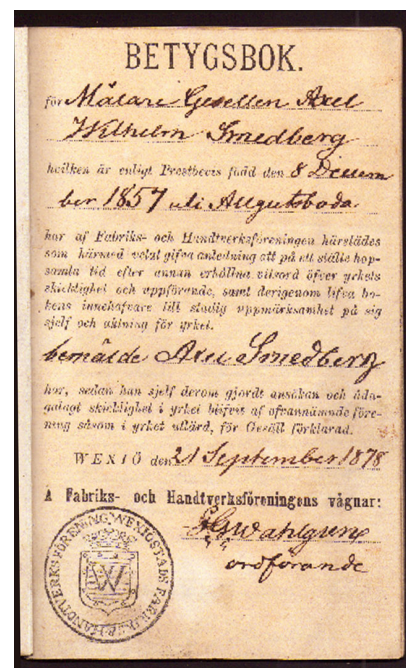 BETYGSBOK.
för Målare Gesellen Axel
Wilhelm Smedberg
hvilken är enligt Prestbevis född den 8 Decem
ber 1857 uti Augutsboda
har af Fabriks- och Handtverksföreningen härstädes
som härmed velat gifva anledning att på ett ställe hop-
samla tid efter annan erhållna vitsord öfver yrkets
skicklighet och uppförande, samt derigenom lifva bo-
kens innehafvare till stadig uppmärksamhet på sig
sjelf och aktning för yrket.
bemälde Axel Smedberg
har, sedan han sjelf derom gjordt ansökan och åda-
galagt skicklighet i yrket blifvit af ofvannämnde före-
ning såsom i yrket utlärd, för Gesäll förklarad.
WEXIÖ den 21 September 1878
Å Fabriks- och Handtverksföreningens vägnar:
Wahlgren
ordförande
WEXIÖ STADS FABRIKS- & HANDTVERKSFÖRENING
W